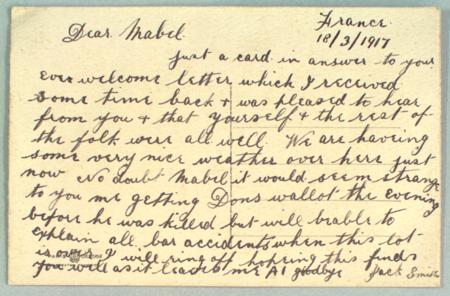 France.
18/3/1917
Dear Mabel.
Just a card in answer to your
ever welcome letter which I received
some time back & was pleased to hear
from you & that yourself & the rest of
the folk were all well. We are having
some very nice weather over here just
now No doubt Mabel it would seem strange
to you me getting Dons wallot the evening
before he was killed but will beable to
explain all bar accidents when this lot
is over I will ring off hoping this finds
you well as it leaves me A1 goodbye Jack Smith